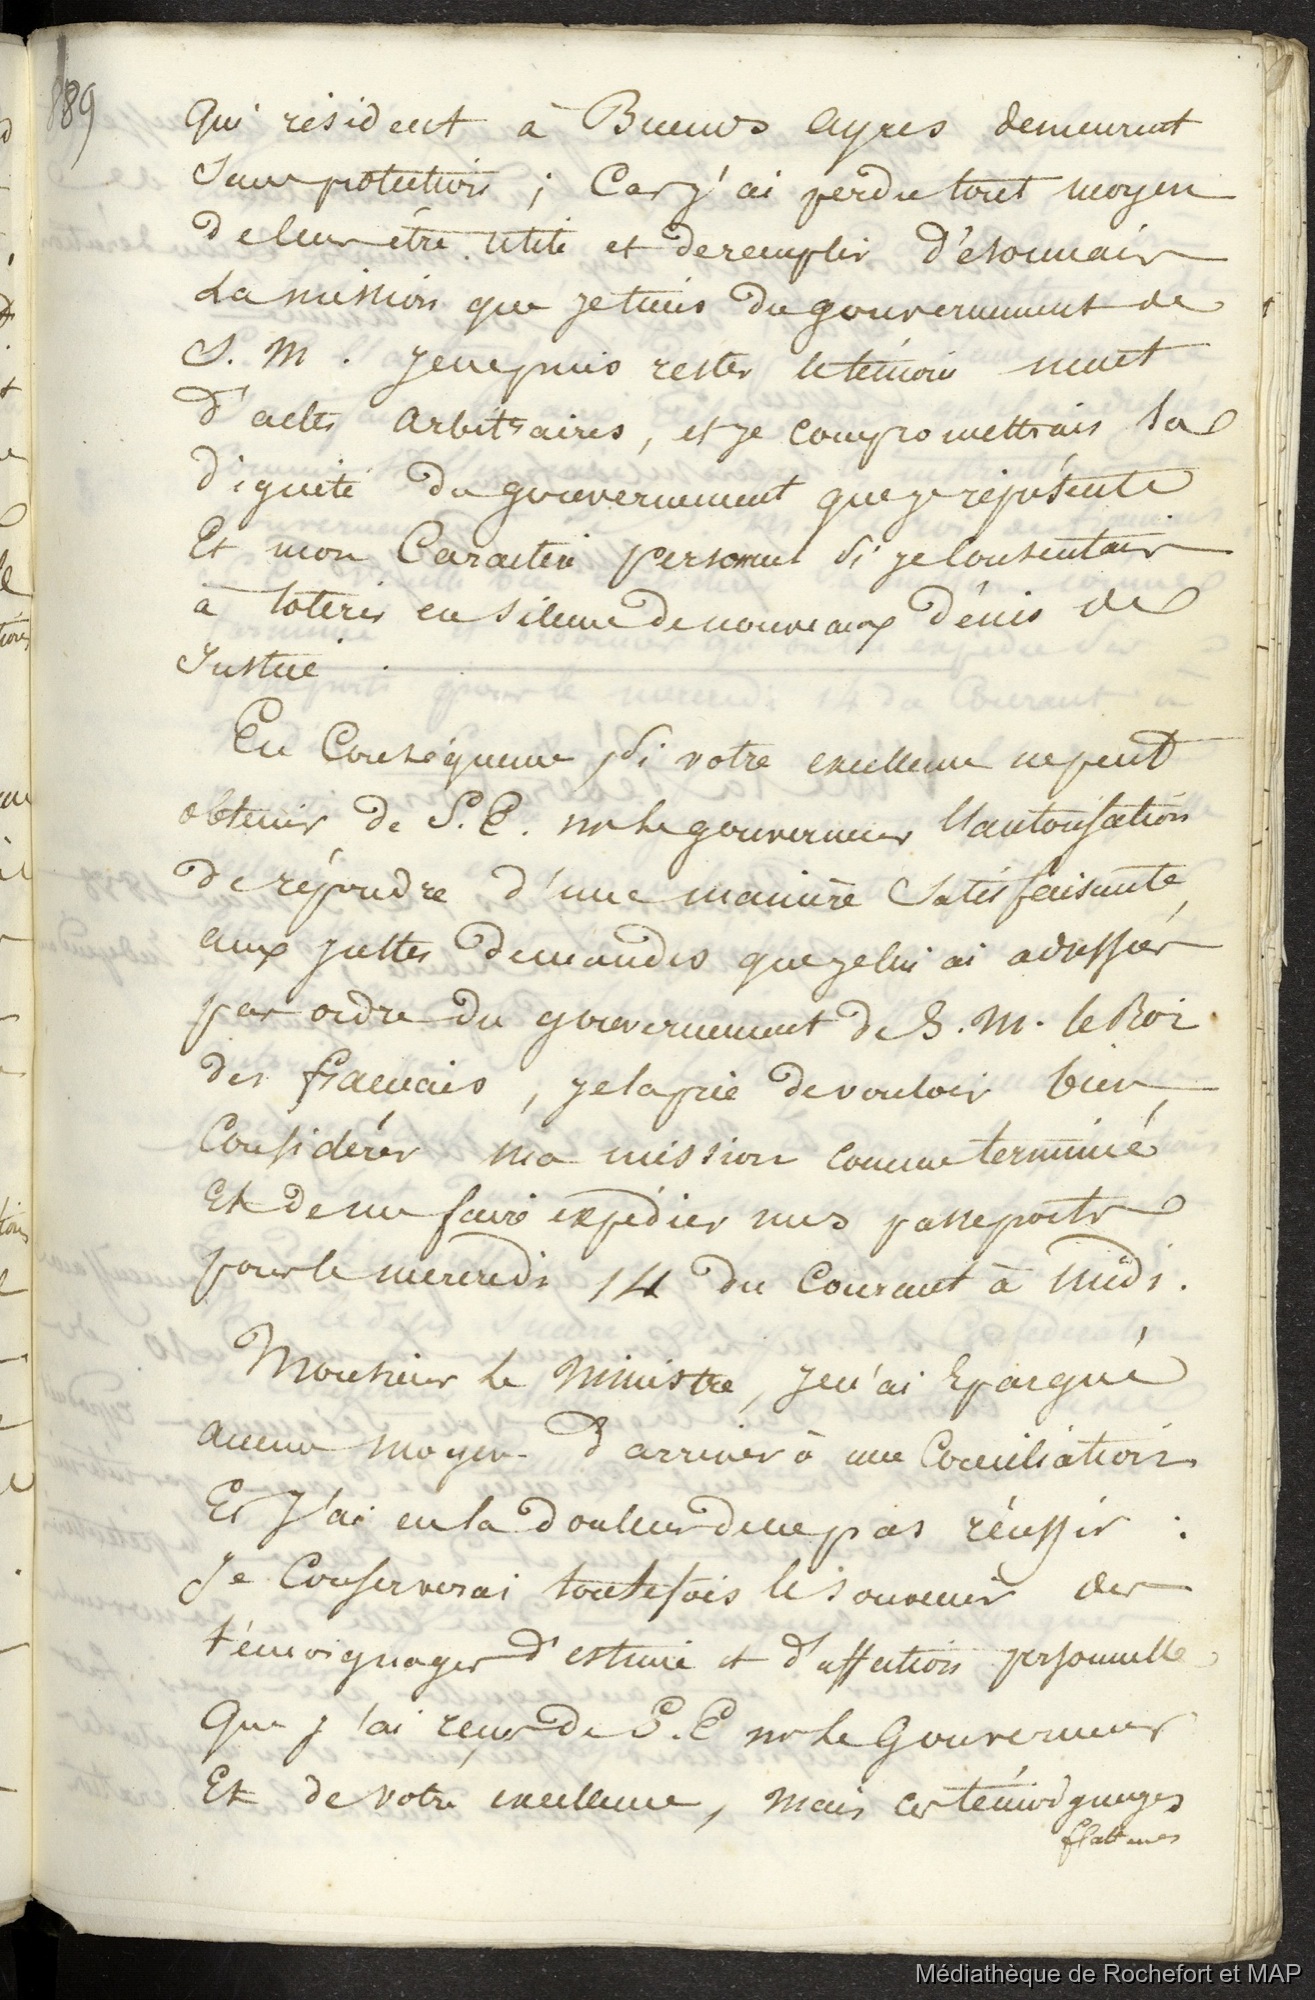 889
qui résident à Buenos ayres demeurent
sans protection ; Car j'ai perdu tout moyen
de leur être utile et de remplir désormais
la mission que je tiens du gouvernement de
S. M. je ne puis rester le témoin muet
d'actes arbitraires, et je compromettrais la
dignité du gouvernement que je représente
Et mon Caractère personnel si je consentais
à tolérer en silence de nouveaux dénis de
Justice.
En Conséquence, si votre excellence ne peut
obtenir de S. E. mr le gouverneur l'autorisation
de répondre d'une manière satisfaisante,
aux justes demandes que je lui ai adressées
par ordre du gouvernement de S. M. le Roi
des français, je la prie de vouloir bien
Considérer ma mission comme terminée
Et de me faire expédier mes passeports
pour le mercredi 14 du Courant à midi.
Monsieur le Ministre, je n'ai Epargné
aucun moyen d'arriver à une Conciliation
Et j'ai eu la douleur de ne pas réussir :
Je Conserverai toutefois le souvenir des
témoignages d'estime et d'affection personnelle
que j'ai reçus de S. E mr le Gouverneur
Et de votre excellence, mais ces témoignages
flatteurs
Médiathèque de Rochefort et MAP